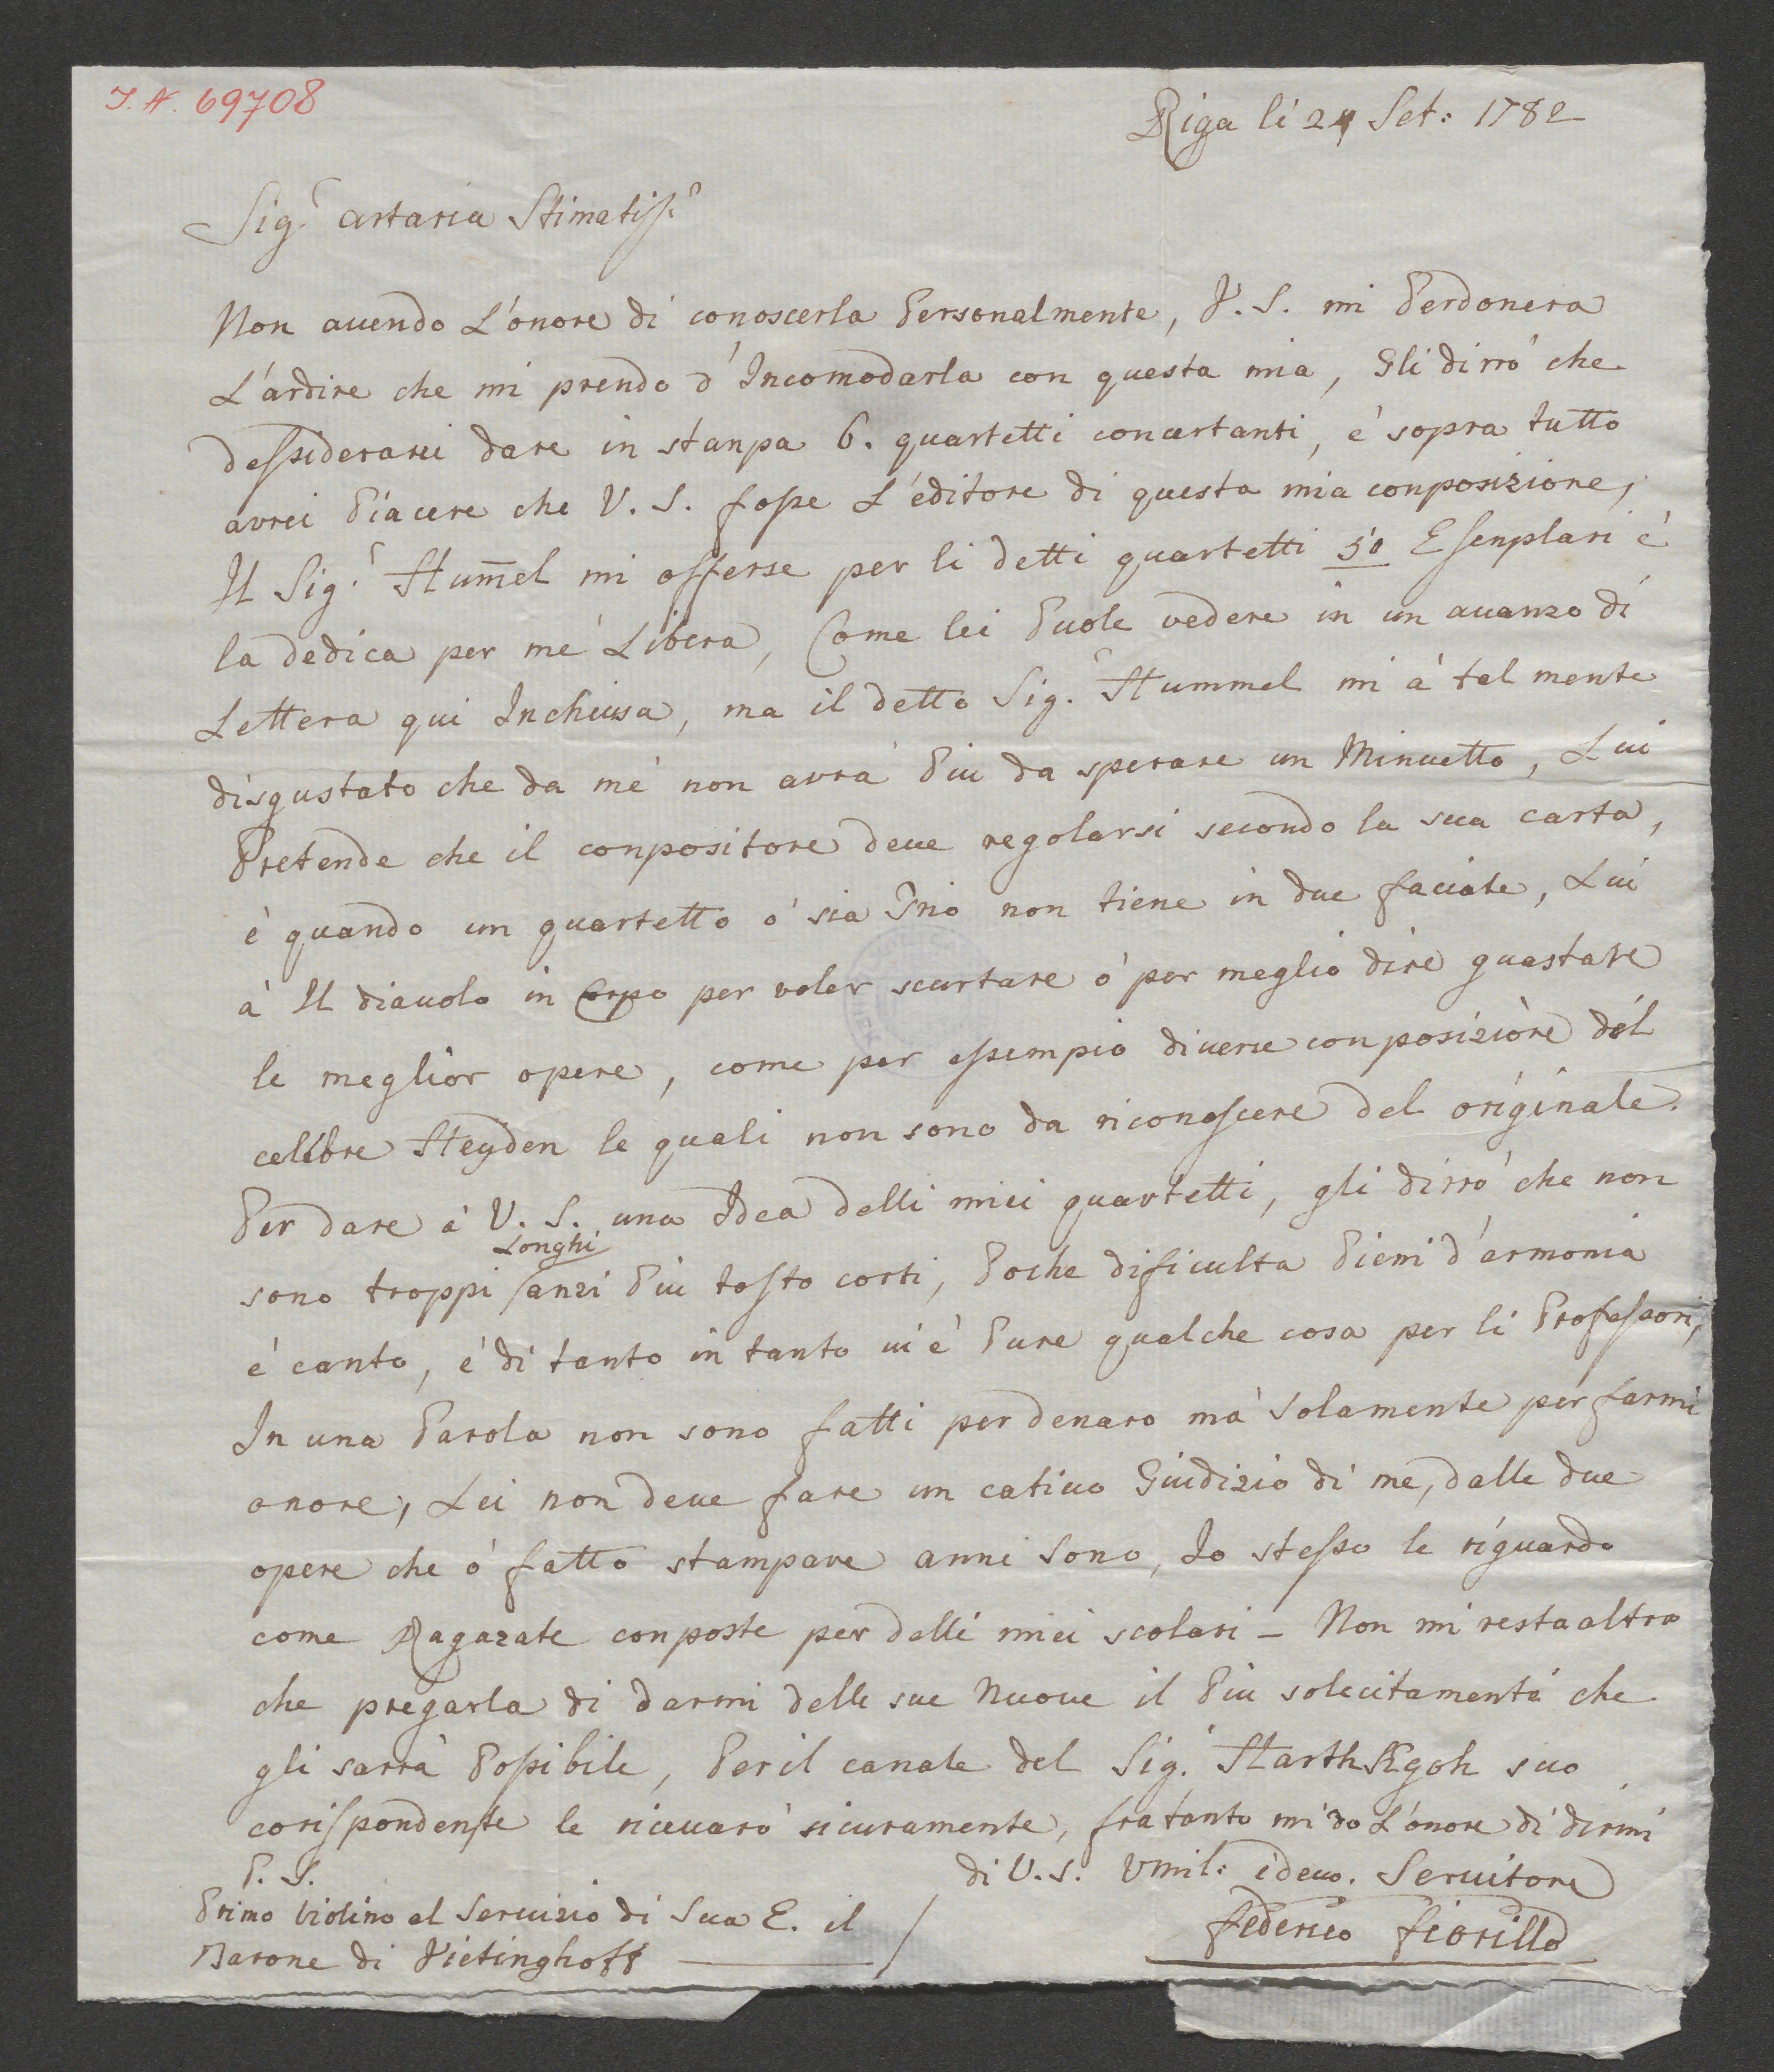 I. N. 69708
Riga li 24 Set: 1782
Sig.r Artaria Stimatiss.o
Non auendo L'onore di conoscerla Personalmente, V. S. mi Perdonera
L'ardire che mi prendo d'Incomodarla con questa mia, Gli dirrò che
dessiderarei dare in stanpa 6. quartetti concertanti, è sopra tutto
avrei Piacere che V. S. fosse L'editore di questa mia conposizione,
Il Sig.r Hum̅el mi offerse per li detti quartetti 50 Esenplari è
la dedica per me Libera, Come lei Puole vedere in un auanzo di
Lettera qui Inchiusa, ma il detto Sig.r Hummel mi à tal mente
disgustato che da me non avrà Piu da sperare un Minuetto, Lui
Pretende che il conpositore deue regolarsi secondo la sua carta,
è quando un quartetto ò sia Trio non tiene in due faciate, Lui
à Il diauolo in Corpo per voler scurtare ò per meglio dire guastare
le meglior opere, come per essempio diuerse conposizione del
celebre Heyden le quali non sono da riconoscere del originale.
Per dare à V. S. una Idea delli miei quartetti, gli dirrò che non
sono troppi Longhi anzi Piu tosto corti, Poche dificulta Pieni d'armonia
è canto, è di tanto in tanto ui è Pure qualche cosa per li Professori,
In una Parola non sono fatti per denaro mà solamente per farmi
onore, Lei non deue fare un catiuo Giudizio di me, dalle due
opere che ò fatto stampare anni sono, Io stesso le riguardo
come Ragazate conposte per delli miei scolari – Non mi resta altro
che pregarla di darmi delle sue Nuoue il Piu solecitamente che
gli sarrà Possibile, Per il canale del Sig.r suo
corispondente le riceuarò sicuramente, fra tanto mi do L'onore di dirmi
di V. S. Vmil: è deuo. Seruitore
Federico Fiorillo
P. S.
Primo Violino al Seruizio di Sua E. il
Barone di Vietinghoff